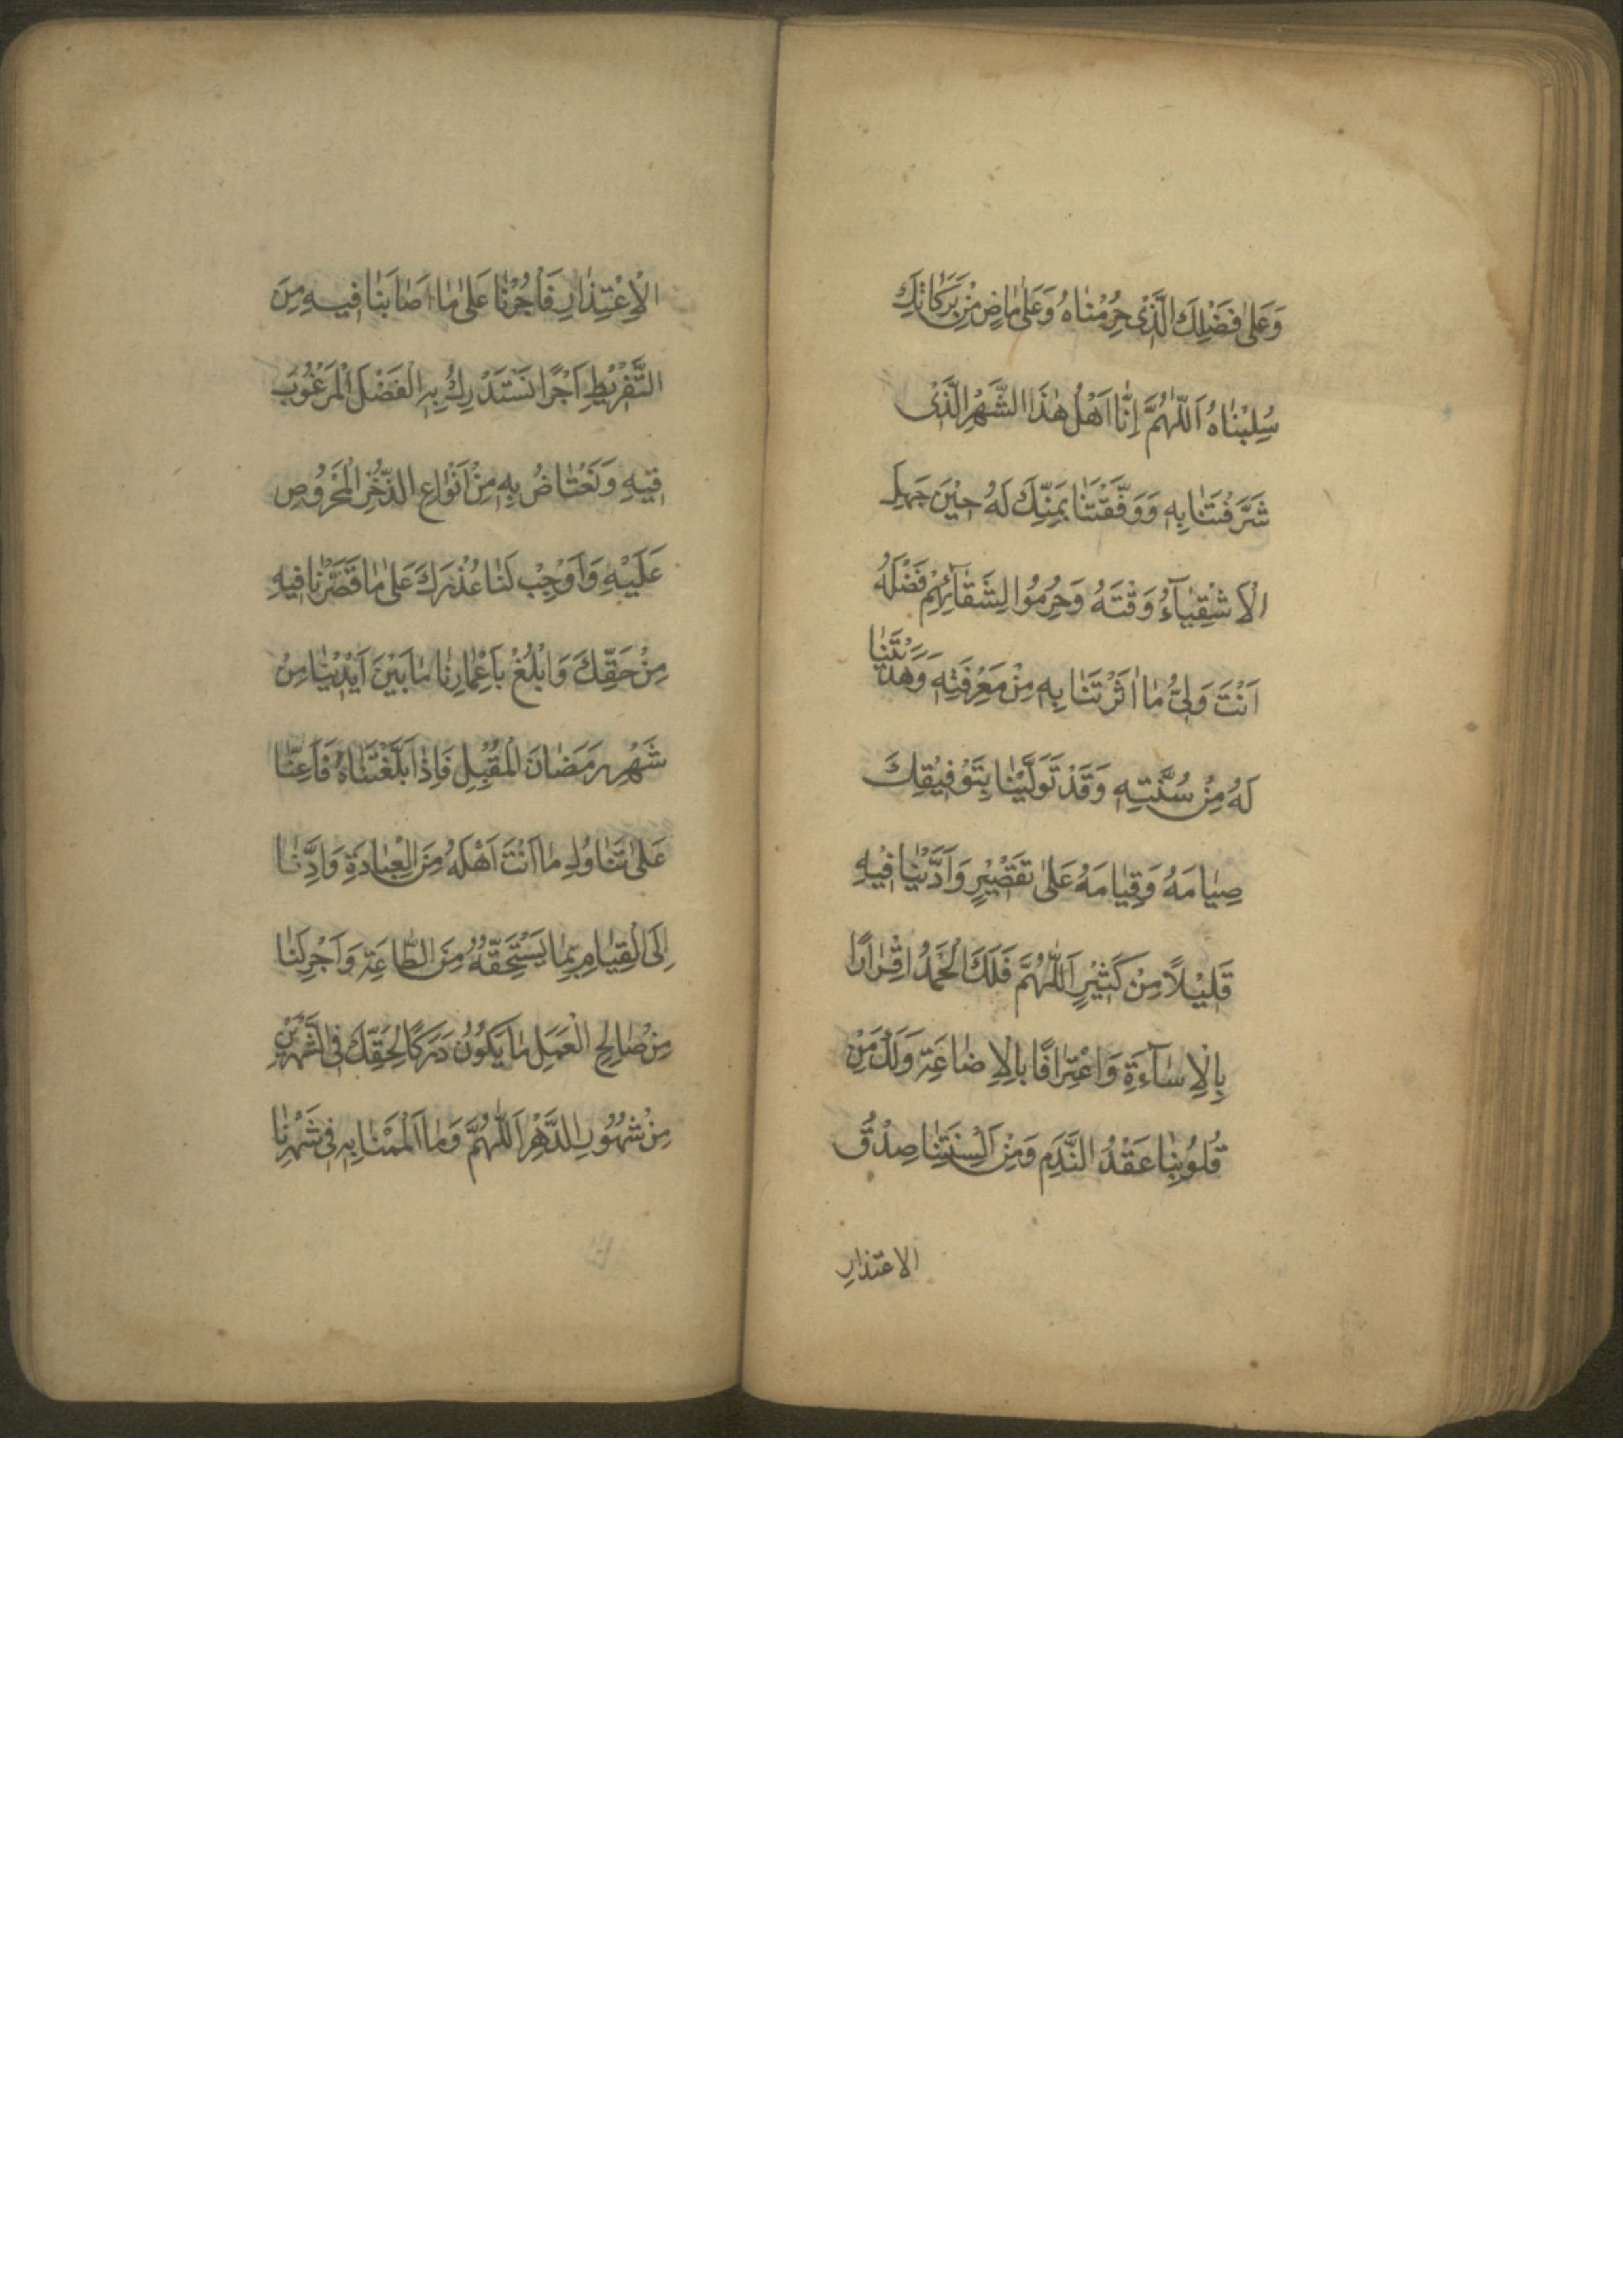 وَعَلٰى فَضْلِكَ الَّذْى حُرِمْنٰاهُ وَعَلٰى مٰاضٍ مِنْ بَرَكٰاتِكَ
سُلِبْنٰاهُ اَللّٰهُمَّ اِنّٰا اَهْلُ هٰذَا الشَّهْرِ الَّذْى
شَرَّفْتَنٰا بِهِ وَوَفَّقْتَنٰا بِمَنِّكَ لَهُ حِيْنَ جَهِلَ
الْاَشْقِيٰآءُ وَقْتَهُ وَحُرِمُوا لِشَقٰآئِهِمْ فَضْلَهُ
اَنْتَ وَلِىُّ مٰا اٰثَرْتَنٰا بِهِ مِنْ مَعْرِفَتِهِ وَهَدَيْتَنٰا
لَهُ مِنْ سُنَّتِهِ وَقَدْ تَوَلَّيْنٰا بِتَوْفِيْقِكَ
صِيٰامَهُ وَقِيٰامَهُ عَلٰى تَقْصْيْرٍ وَاَدَّيْنٰا فِيْهِ
قَلِيْلًا مِنْ كَثِيْرٍ اَللّٰهُمَّ فَلَكَ الْحَمْدُ اِقْرٰارًا
بِالْاِسٰآءَةِ وَاعْتِرٰافًا بِالْاِضٰاعَةِ وَلَكَ مِنْ
قُلُوْبِنٰا عَقْدُ النَّدَمِ وَمِنْ اَلْسِنَتِنٰا صِدْقُ
الاعتذارِ
الْاِعْتِذٰارِ فَأْجُرْنٰا عَلٰى مٰا اَصٰابَنٰا فيهِ مِنَ
التَّفْرْيْطِ اَجْرًا نَسْتَدْرِكُ بِهِ الْفَضْلَ الْمَرْغُوْبَ
فيهِ وَنَعْتٰاضُ بِهِ مِنْ اَنْوٰاعِ الذُّخْرِ الْمَحْرُوْصِ
عَلَيْهِ وَاَوْجِبْ لَنٰا عُذْرَكَ عَلٰى مٰا قَصَّرْنٰا فيهِ
مِنْ حَقِّكَ وَابْلُغْ بِاَعْمٰارِنٰا مٰا بَيْنَ اَيْدْيْنٰا مِنْ
شَهْرِ رَمَضٰانَ الْمُقْبِلِ فَاِذٰا بَلَّغْتَنٰاهُ فَاَعِنّٰا
عَلٰى تَنٰاوُلِ مٰا اَنْتَ اَهْلَهُ مِنَ الْعِبٰادَةِ وَاَدِّنٰا
اِلَى الْقِيٰامِ بِمٰا يَسْتَحِقُّهُ مِنَ الطّٰاعَةِ وَاَجْرِ لَنٰا
مِنْ صٰالِحِ الْعَمَلِ مٰا يَكُوْنُ دَرَكًا لِحَقِّكَ فِى الشَّهْرَيْنِ
مِنْ شُهُوْرِ الدَّهْرِ اَللّٰهُمَّ وَمٰا اَلْمَمْنٰا بِهِ فِى شَهْرِنٰا